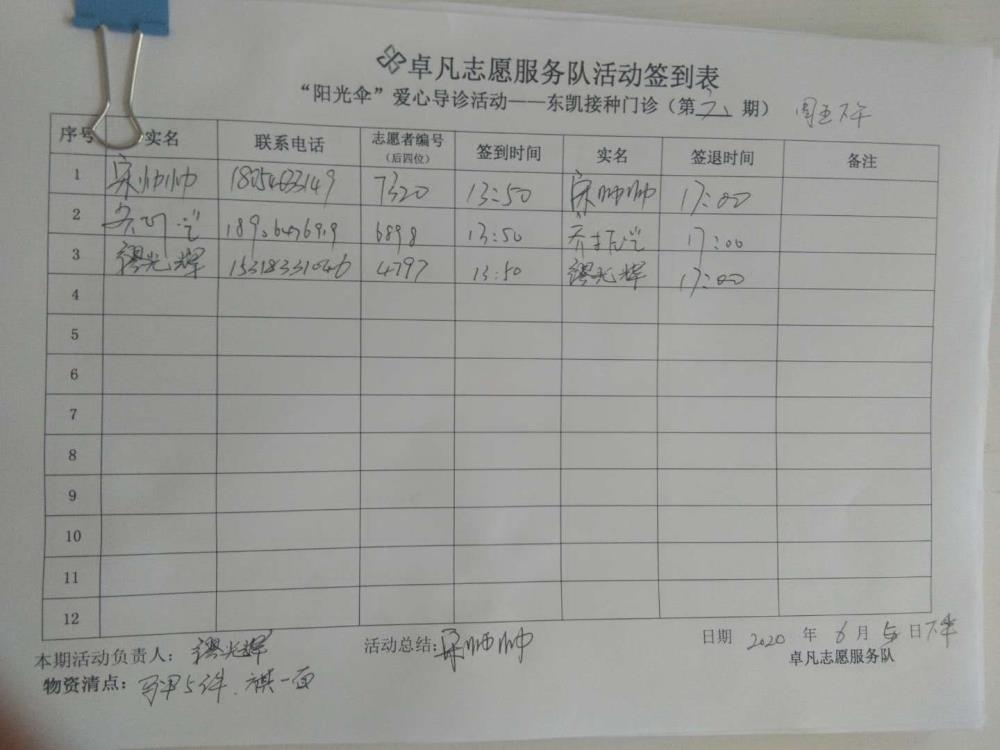 卓凡志愿服务队活动签到表
“阳光伞”爱心导诊活动——东凯接种门诊（第 六 期） 周五下午
序号 实名 联系电话 志愿者编号（后四位） 签到时间 实名 签退时间 备注
1 宋帅帅 7320 13:50 宋帅帅 17:00
2 6898 13:50 17:00
3 缪光辉 15318331046 4797 13:50 缪光辉 17:00
4
5
6
7
8
9
10
11
12
本期活动负责人： 缪光辉 活动总结: 宋帅帅 日期 2020 年 6 月 5 日下午
物资清点： 马甲5件、旗一面 卓凡志愿服务队